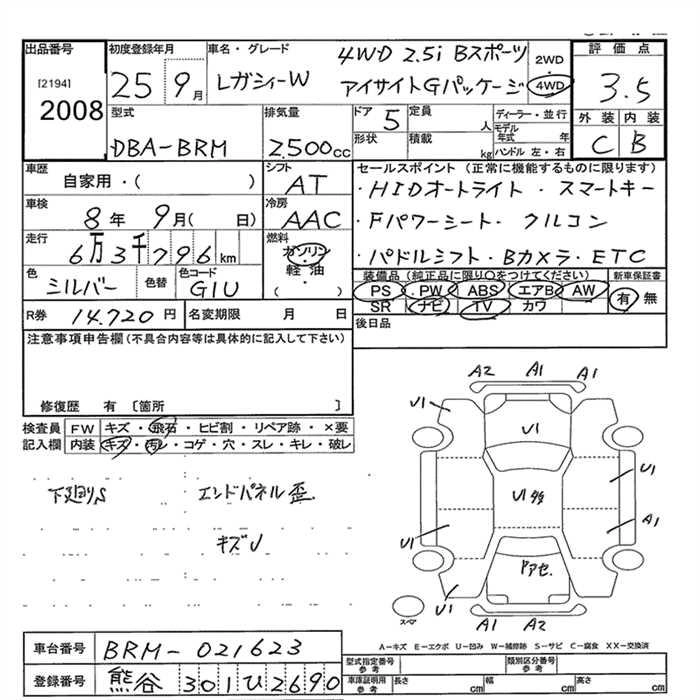 出品番号
[2194]
2008
初度登録年月
25 9月
車名・グレード
レガシィーW
4WD 2.5i Bスポーツ
アイサイトGパッケージ
2WD・4WD
評価点
3.5
外装 内装
C B
型式
DBA-BRM
排気量
2.500cc
ドア 5
定員 人
形状
積載 kg
ディーラー・並行
モデル年式 年
ハンドル 左・右
車歴
自家用・( )
シフト
AT
車検
8年 9月( 日)
冷房
AAC
走行
6万3千796km
燃料
ガソリン・軽油・( )
色
シルバー
色替
色コード
G1U
R券 14.720円
名変期限 月 日
セールスポイント(正常に機能するものに限ります)
・HIDオートライト・スマートキー
・Fパワーシート・クルコン
・パドルシフト・Bカメラ・ETC
装備品(純正品に限り○をつけてください)
PS PW ABS エアB AW
SR ナビ TV カワ
新車保証書
有 無
後日品
注意事項申告欄(不具合内容等は具体的に記入して下さい)
修復歴 有 [箇所 ]
検査員記入欄
FW キズ・飛石・ヒビ割・リペア跡・×要
内装 キズ・汚レ・コゲ・穴・スレ・キレ・破レ
下廻りS
エンドパネル歪.
キズU
A2 A1 A1
U1
U1
U1
U1
A1
U1
ドアセ.
U1
スペア
A1 A2
A-キズ E-エクボ U-凹み W-補修跡 S-サビ C-腐食 XX-交換済
車台番号
BRM-021623
登録番号
熊谷 301 ひ 2690
型式指定番号 参考
類別区分番号 参考
車庫証明用 参考
長さ cm
幅 cm
高さ cm